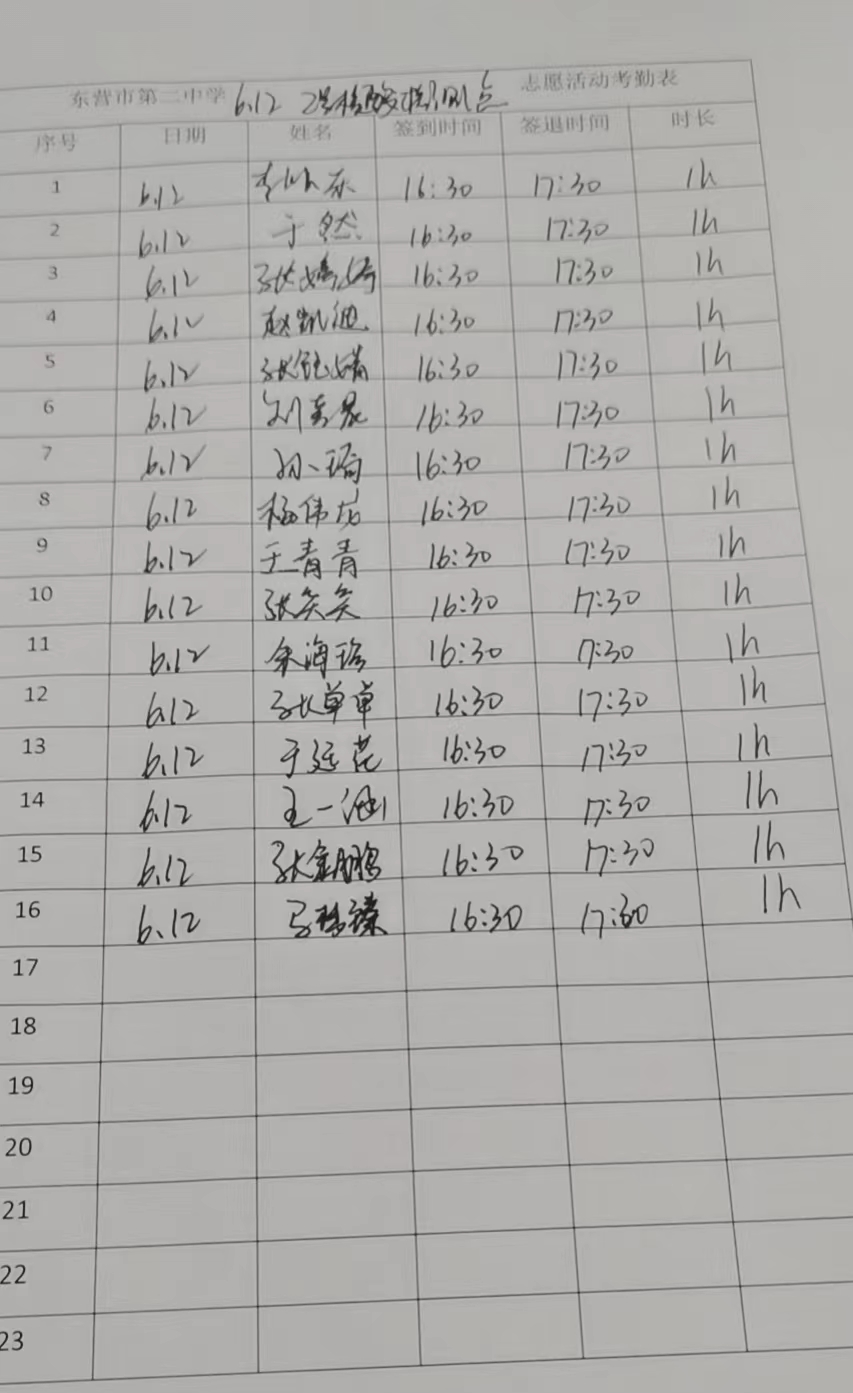 东营市第二中学 6.12 2号核酸检测点 志愿活动考勤表
序号 日期 姓名 签到时间 签退时间 时长
1 6.12 16:30 17:30 1h
2 6.12 于然 16:30 17:30 1h
3 6.12 张 16:30 17:30 1h
4 6.12 赵凯迪 16:30 17:30 1h
5 6.12 张 16:30 17:30 1h
6 6.12 刘 16:30 17:30 1h
7 6.12 孙一琦 16:30 17:30 1h
8 6.12 杨伟龙 16:30 17:30 1h
9 6.12 王青青 16:30 17:30 1h
10 6.12 张笑笑 16:30 17:30 1h
11 6.12 余海珍 16:30 17:30 1h
12 6.12 张单单 16:30 17:30 1h
13 6.12 于廷花 16:30 17:30 1h
14 6.12 王一涵 16:30 17:30 1h
15 6.12 张金鹏 16:30 17:30 1h
16 6.12 16:30 17:30 1h
17
18
19
20
21
22
23